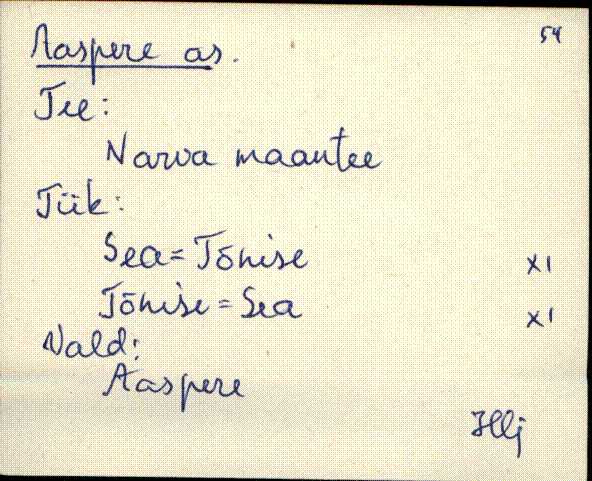 Aaspere as. 54
Tee:
Narva maantee
Tük:
Sea=Tõnise XI
Tõnise=Sea XI
Vald:
Aaspere
Hlj